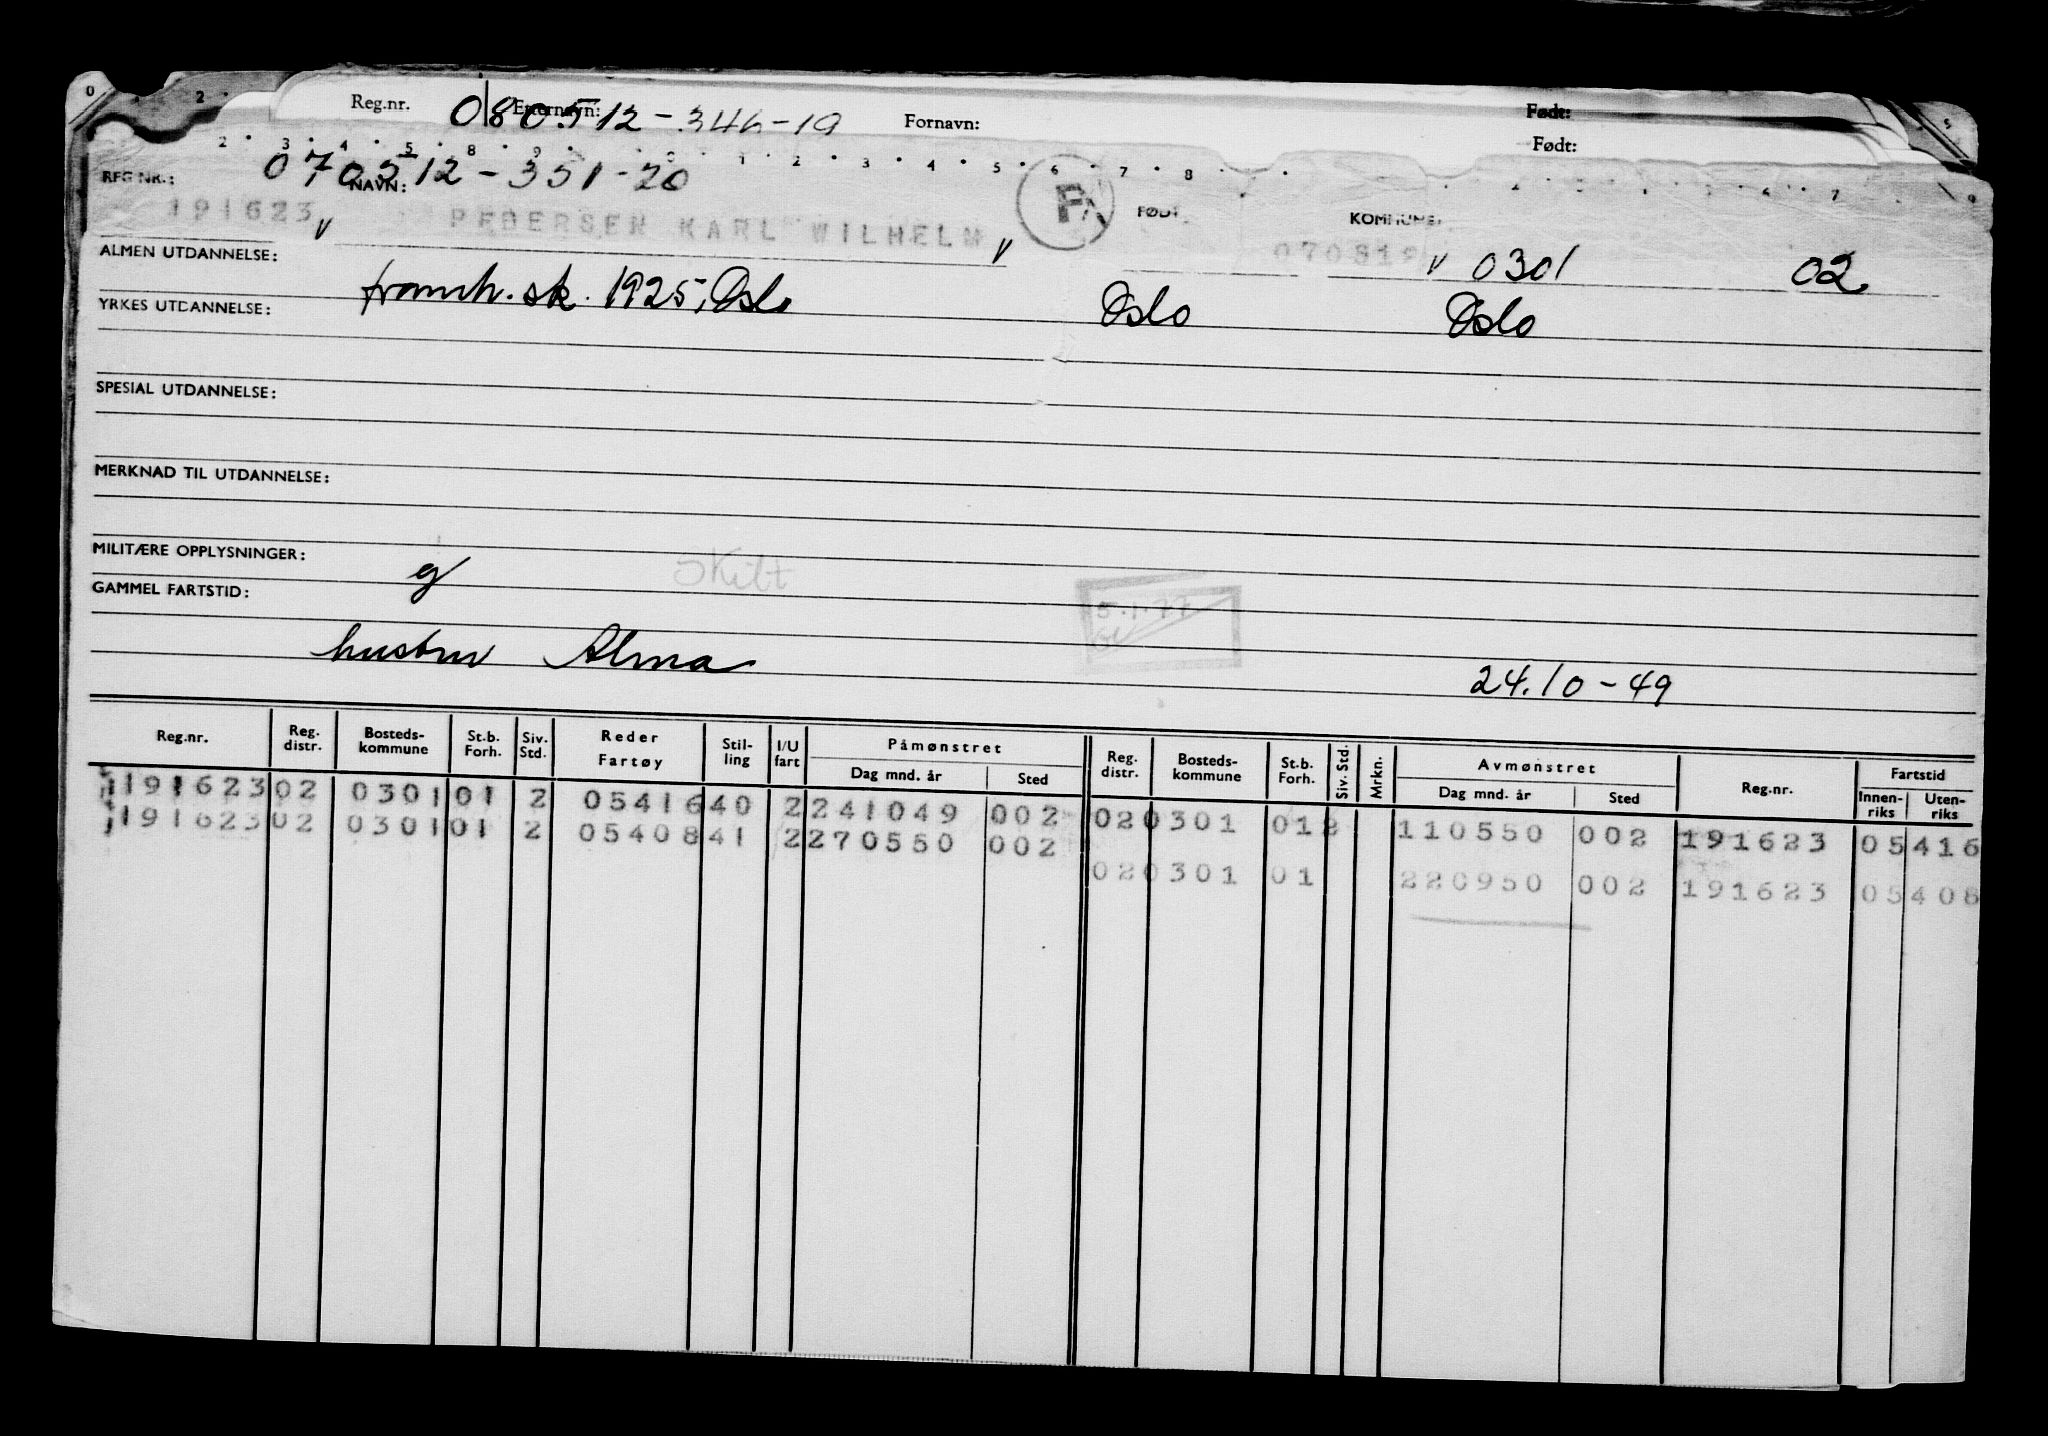 Reg.nr. Etternavn: Fornavn: Født:
080512-346-19
Født:
070512-351-20
REG NR.: NAVN: FØDT KOMMUNE:
191623 PEDERSEN KARL WILHELM
v 0301 02
ALMEN UTDANNELSE: framh. sk. 1925, Oslo Oslo Oslo
YRKES UTDANNELSE:
SPESIAL UTDANNELSE:
MERKNAD TIL UTDANNELSE:
MILITÆRE OPPLYSNINGER: g Skilt
GAMMEL FARTSTID: 5.1.77
hustru Alma 24.10-49
Reg.nr. Reg. distr. Bosteds-kommune St.b. Forh. Siv. Std. Reder Fartøy Stil-ling I/U fart Påmønstret Dag mnd. år Sted Reg. distr. Bosteds-kommune St.b. Forh. Siv. Std. Mrkn. Avmønstret Dag mnd. år Sted Reg.nr. Fartstid Innen-riks Uten-riks
191623 02 0301 01 2 05416 40 2 241049 002 02 0301 01 2 110550 002 191623 05416
191623 02 0301 01 2 05408 41 2 270550 002
02 0301 01 220950 002 191623 05408